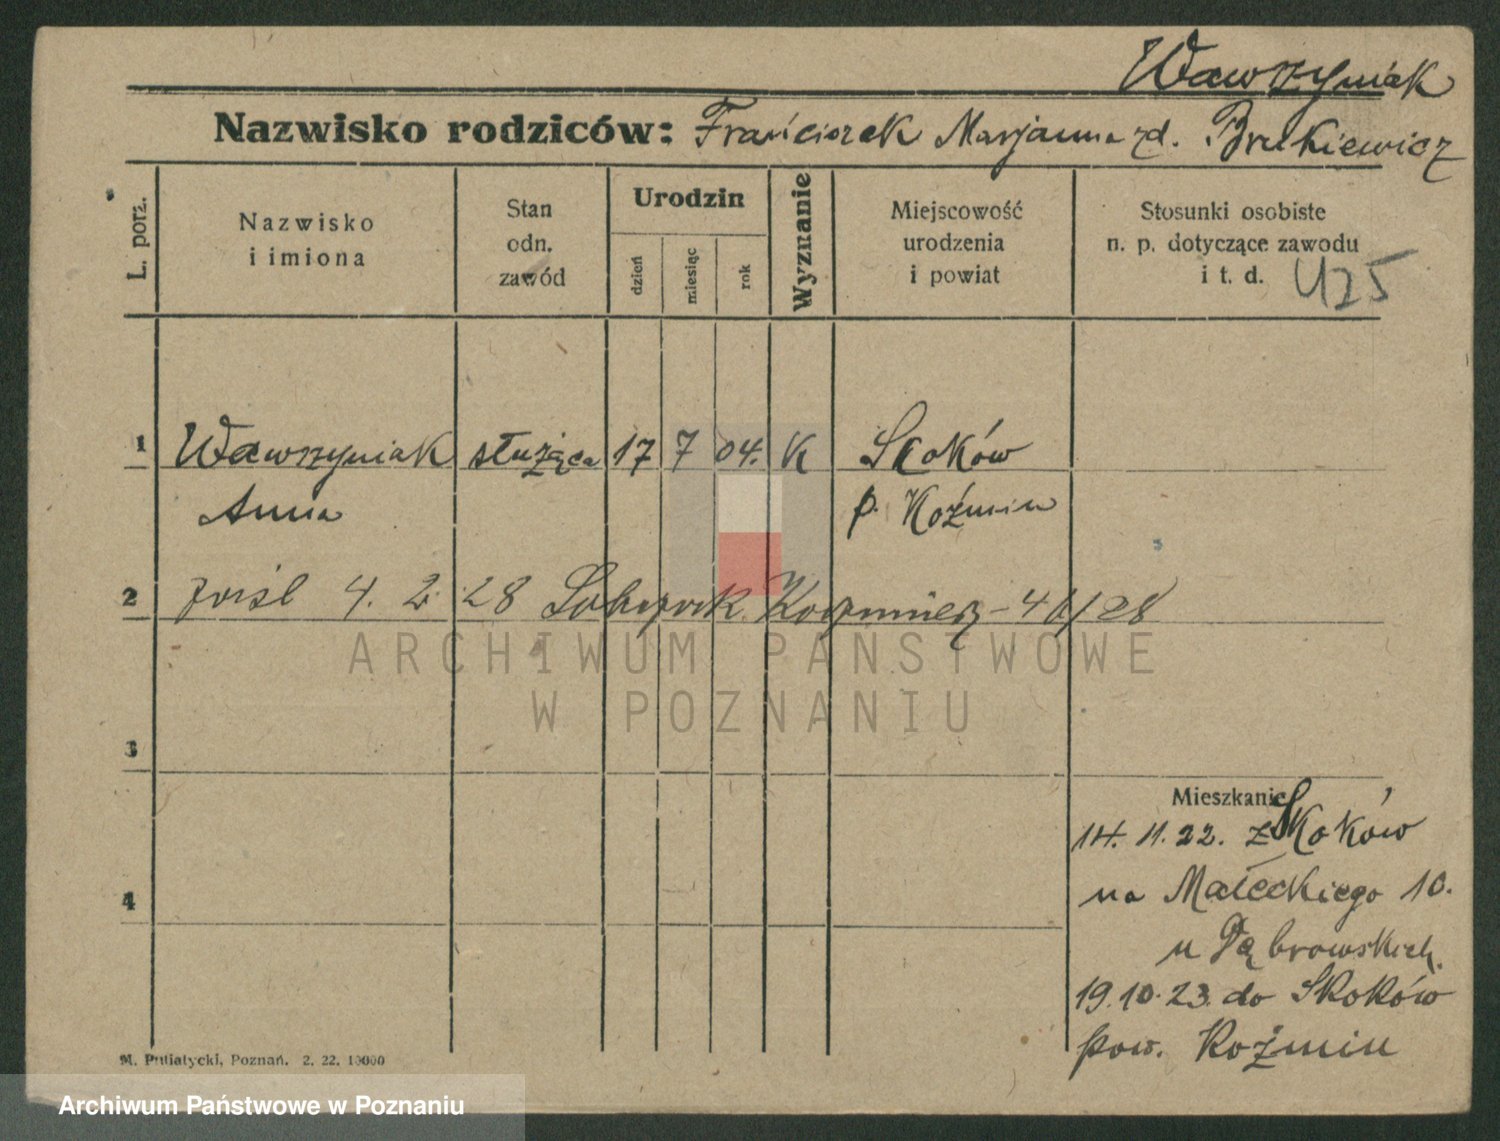 Wawrzyniak
Nazwisko rodziców: Franciszek Marjanna zd. Brukiewicz
L. porz.
Nazwisko
i imiona
Stan
odn.
zawód
Urodzin
dzień
miesiąc
rok
Wyznanie
Miejscowość
urodzenia
i powiat
Stosunki osobiste
n. p. dotyczące zawodu
i t. d.
425
1 Wawrzyniak służąca 17 7 04. K Skoków
Anna p. Koźmin
2 4. 2. 28 Kazimierz
3
4
Mieszkanie
14. 11. 22. z Skoków
na Małeckiego 10.
u Dąbrowskich.
19.10.23. do Skoków
pow. Koźmin
M. Putiatycki, Poznań. 2. 22. 10000
ARCHIWUM PAŃSTWOWE
W POZNANIU
Archiwum Państwowe w Poznaniu